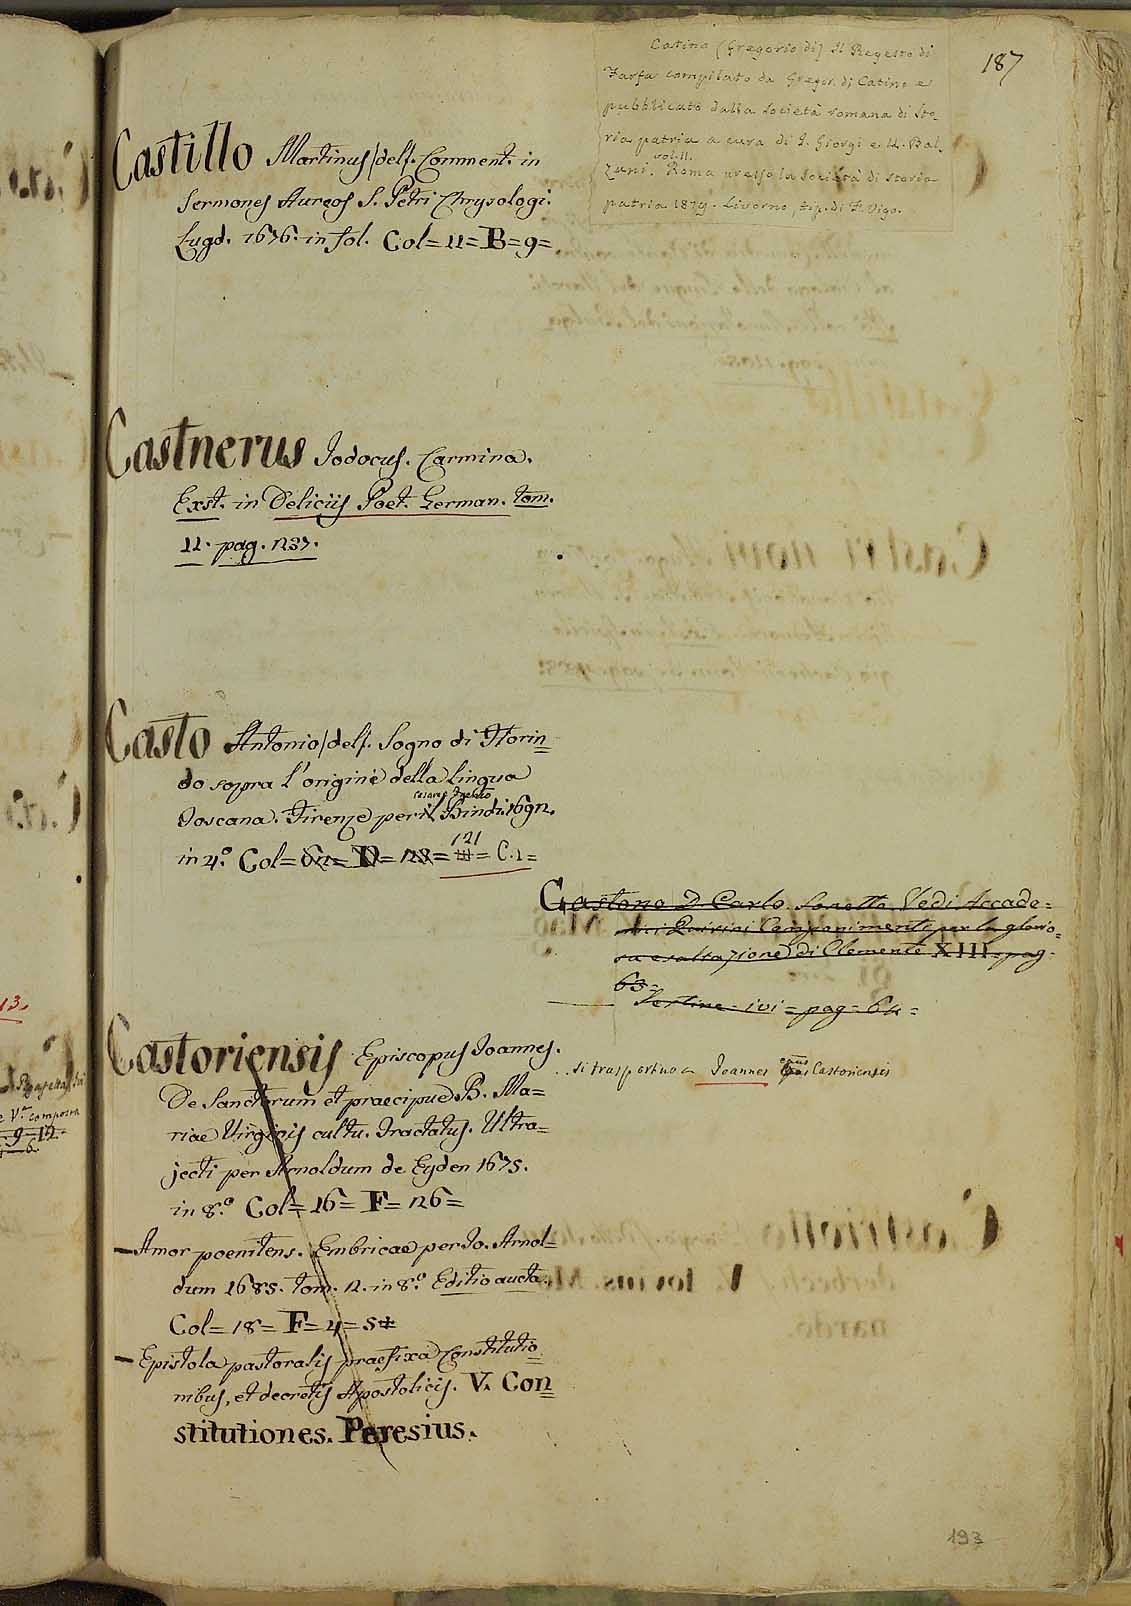 187
Catino (Gregorio di) Il Regesto di
Farfa compilato da Gregor. di Catino e
pubblicato dalla Società romana di Sto
ria patria a cura di I. Giorgi e U. Bal
zani. vol. II. Roma presso la Società di storia
patria 1879. Livorno, tip. di F. Vigo.
Castillo Martinus/del/. Comment. in
Sermones Aureos S. Petri Chrysologi.
Lugd. 1676. in fol. Col= 11= B= 9=
Castnerus Jodocus. Carmina.
Exst. in Deliciis Poet. German. tom.
11. pag. 1237.
Casto Antonio/del/. Sogno di Florin=
do sopra l'origine della lingua
Toscana. Firenze per il Cesare Bindi. 1692.
in 4.º Col= 62= D= 128= 121 = C.1=
Castone D. Carlo. Sonetto. Vedi Accade=
mici Quirini Componimenti per la glorio=
sa esaltazione di Clemente XIII= pag=
63=
Terzine= ivi= pag= 64=
Castoriensis Episcopus Joannes.
si trasportino a Joannes epus Castoriensis
De Sanctorum et praecipue B. Ma=
riae Virginis cultu. Tractatus. Ultra=
jecti per Arnoldum de Eyden 1675.
in 8.º Col= 16= F= 126=
– Amor poenitens. Embricae per Jo. Arnol=
dum 1685. tom. 2. in 8.º Editio aucta.
Col= 18= F= 4= 5
– Epistola pastoralis praefixa Constitutio=
nibus, et decretis Apostolicis. V. Con=
stitutiones. Peresius.
193